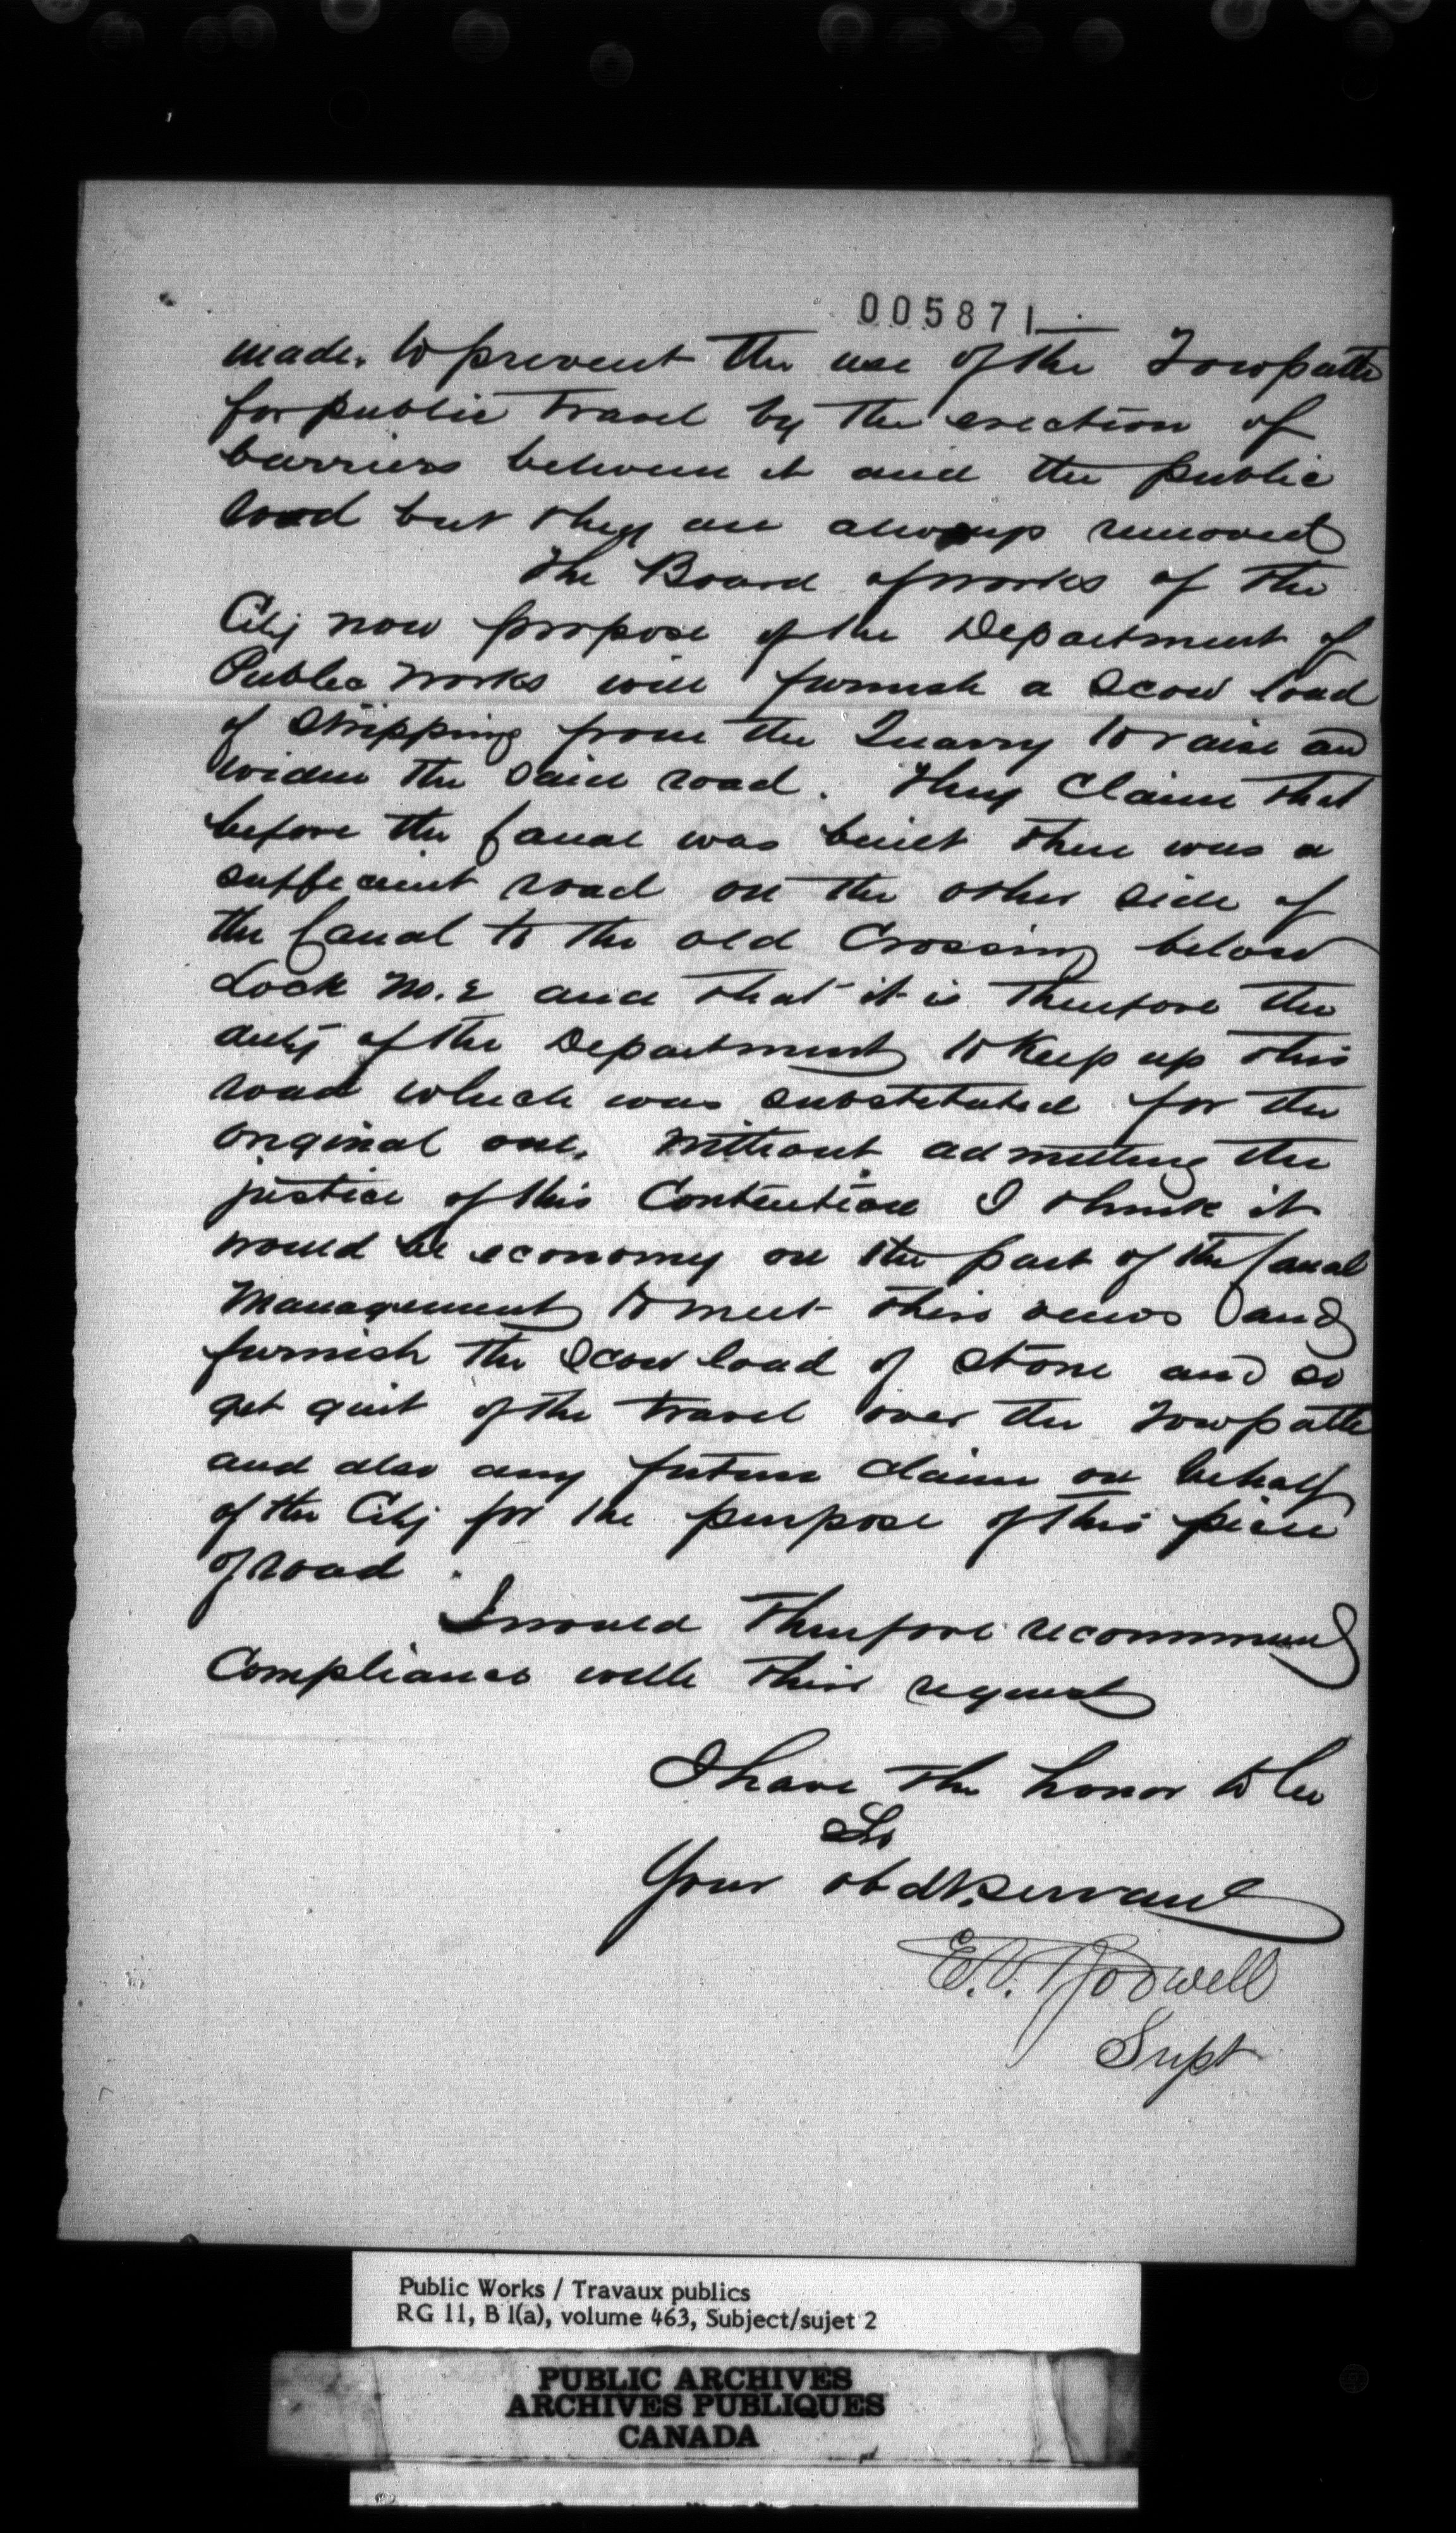 005871
made. to prevent the use of the Towpath
for public travel by the erection of
barriers between it and the public
road but they are always removed
The Board of works of the
City now propose if the Department of
Public works will furnish a scow load
of stripping from the Quarry to raise and
widen the said road. They claim that
before the Canal was built there was a
sufficient road on the other side of
the Canal to the old Crossing below
Lock No. 2 and that it is therefore the
duty of the Department to Keep up this
road which was substituted for the
original one. Without admitting the
justice of this Contention I think it
would be economy on the part of the Canal
Management to meet this views and
furnish the scow load of stone and so
get quit of the travel over the Towpath
and also any future claim on behalf
of the City for the purpose of this piece
of road.
I would therefore recommend
Compliance with this request
I have the honor to be
Sir
Your obdt. servant
E.V. Bodwell
Supt
Public Works / Travaux publics
RG 11, B 1(a), volume 463, Subject/sujet 2
PUBLIC ARCHIVES
ARCHIVES PUBLIQUES
CANADA